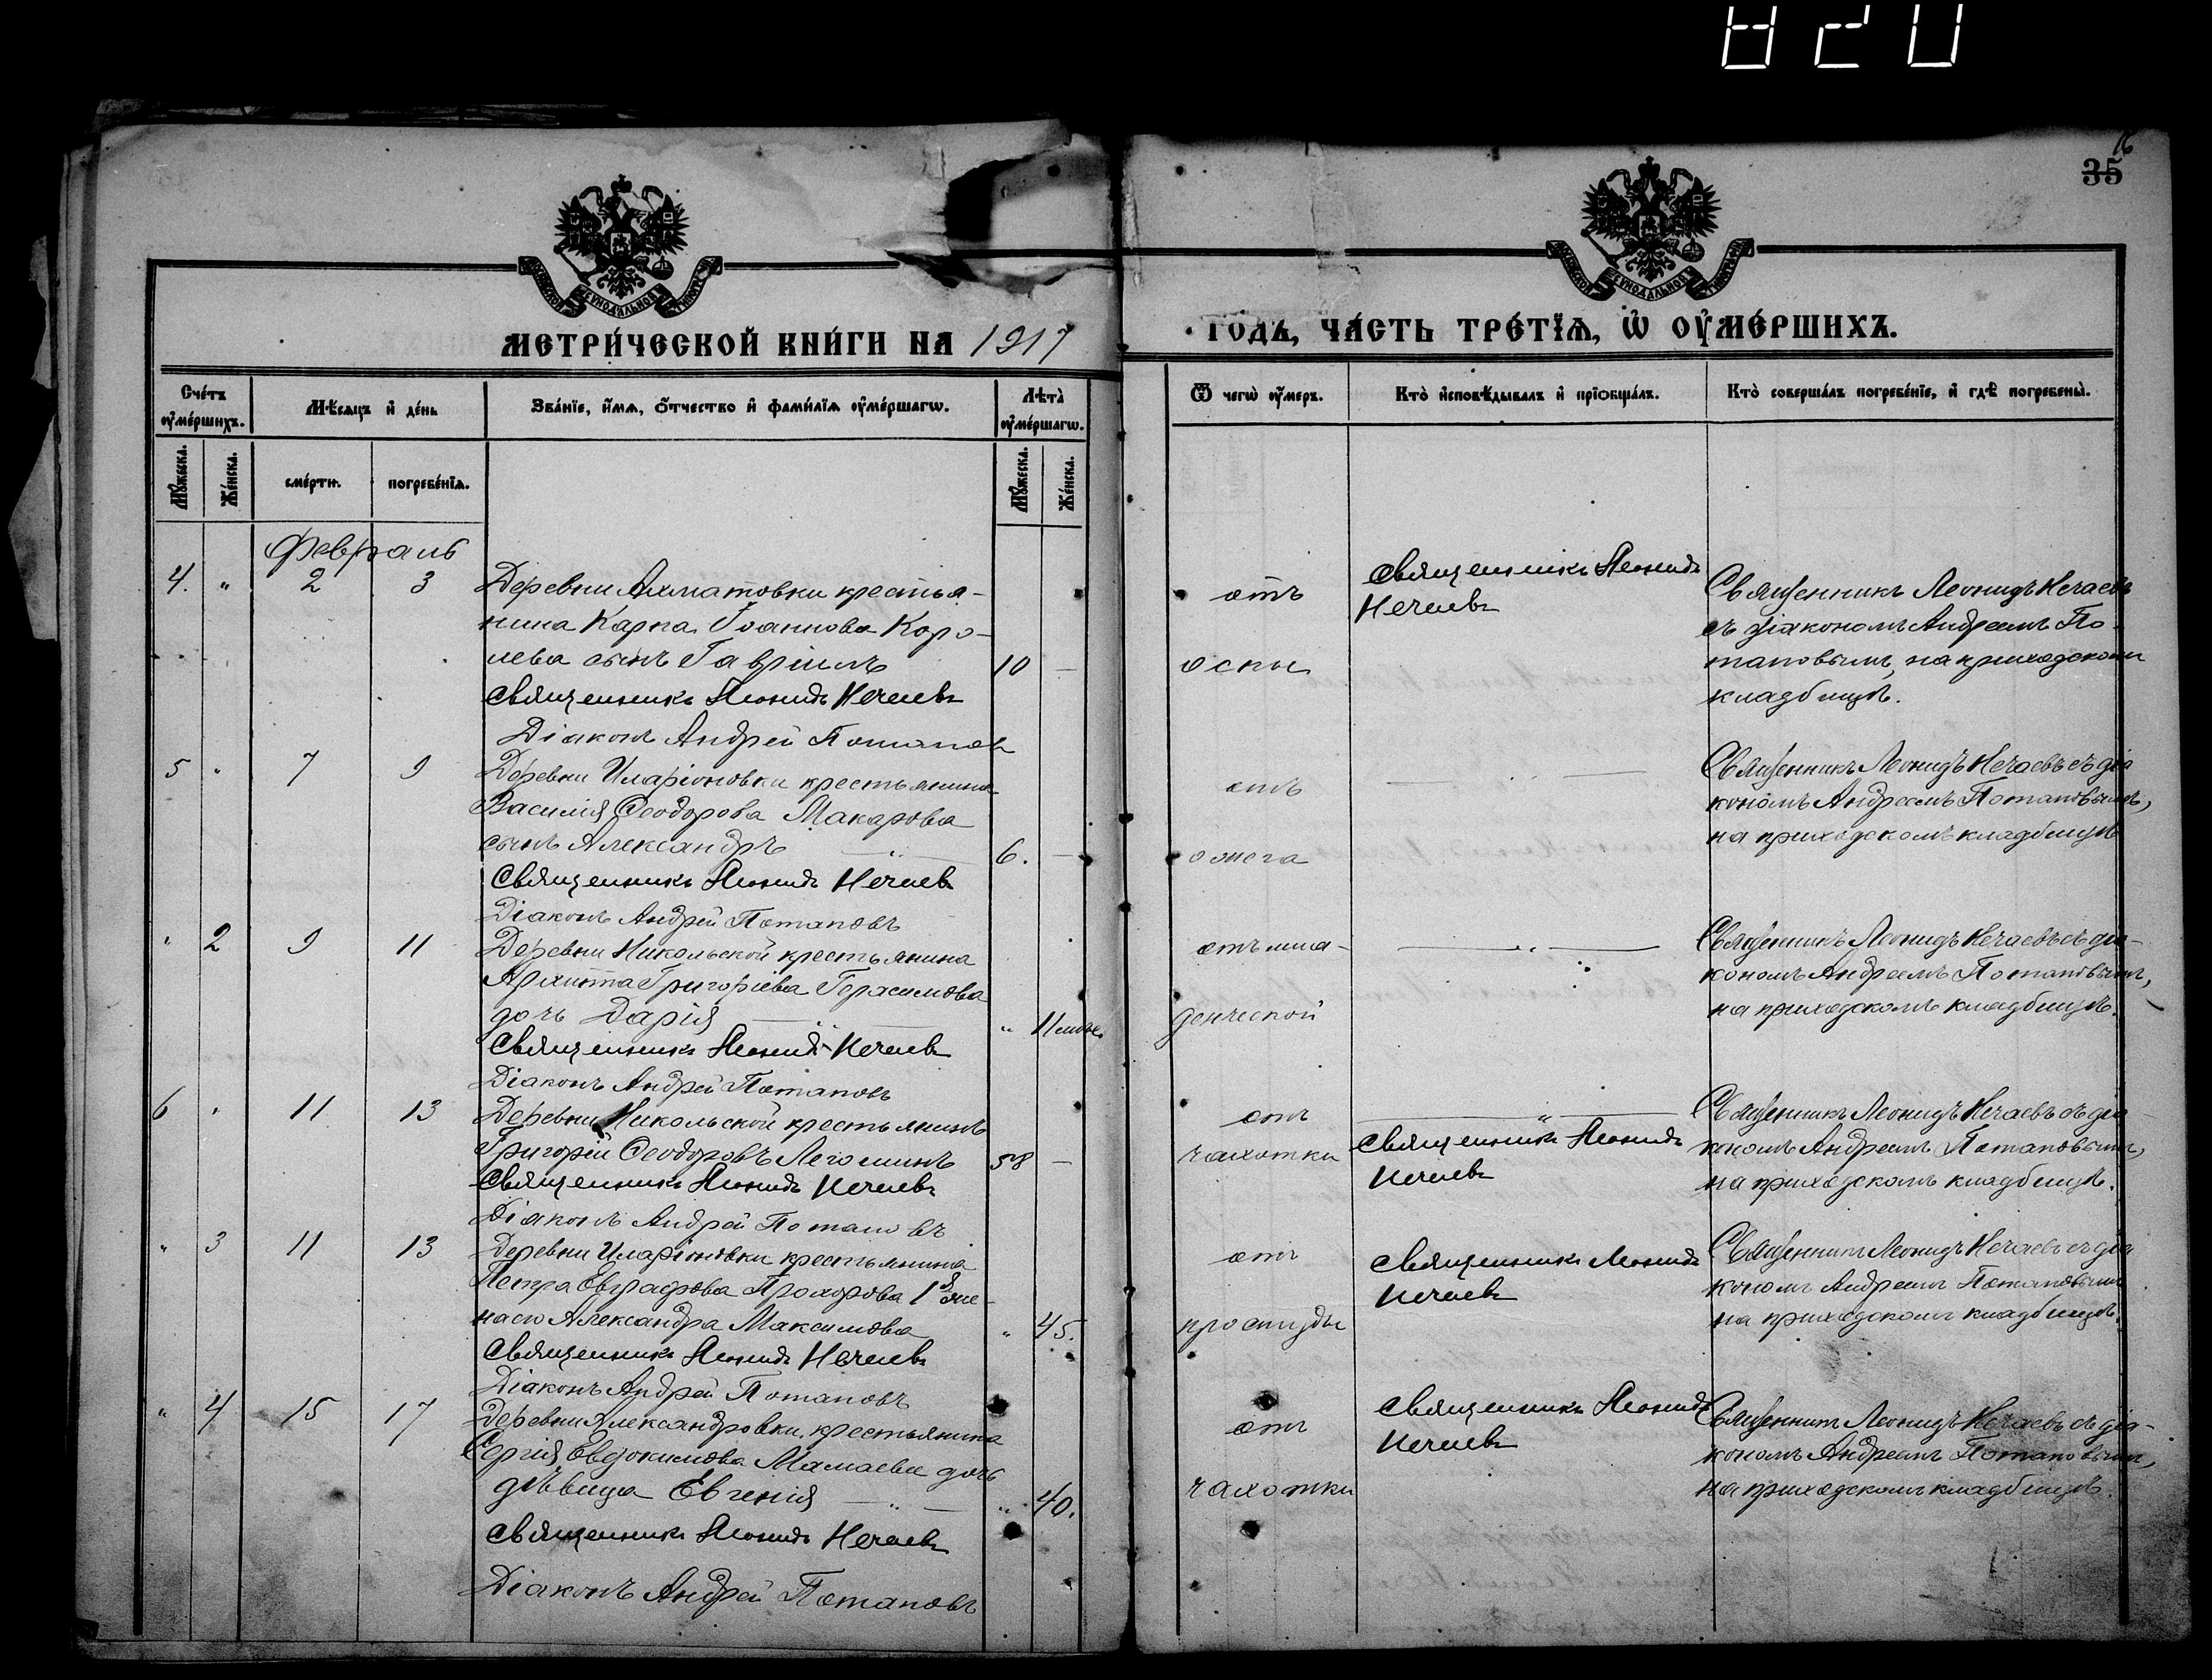 820
16
35
МЕТРИ́ЧЕСКОЙ КНИ́ГИ НА 1917
ГОДЪ, ЧА́СТЬ ТРЕ́ТЇѦ, Ѡ҆ ОУ҆МЕ́РШИХЪ.
Сче́тъ оу҆ме́ршихъ.
Мѣ́сѧцъ и҆ де́нь
Зва́нїе, и҆́мѧ, о҆́тчество и҆ фами́лїѧ оу҆ме́ршагѡ.
Лѣта̀ оу҆ме́ршагѡ.
Ѿ чегѡ̀ оу҆́меръ.
Кто̀ и҆сповѣ́дывалъ и҆ прїѡбща́лъ.
Кто̀ соверша́лъ погребе́нїе, и҆ гдѣ̀ погребены̀.
Мꙋ́жеска.
Же́нска.
сме́рти.
погребе́нїѧ.
Мꙋ́жеска.
Же́нска.
Февраль
4. " 2 3
Деревни Ахматовки крестья-
нина Карпа Іоаннова Коро-
лева сынъ Гавріилъ 10 —
Священникъ Леонидъ Нечаевъ
Діаконъ Андрей Потаповъ
отъ
оспы
Священникъ Леонидъ
Нечаевъ
Священникъ Леонидъ Нечаевъ
съ діакономъ Андреемъ По-
таповымъ, на приходскомъ
кладбищѣ.
5 " 7 9
Деревни Иларіоновки крестьянина
Василія Ѳеодорова Макарова
сынъ Александръ — " — 6. —
Священникъ Леонидъ Нечаевъ
Діаконъ Андрей Потаповъ
отъ
ожога
— " —
Священникъ Леонидъ Нечаевъ съ діа
кономъ Андреемъ Потаповымъ,
на приходскомъ кладбищѣ
" 2 9 11
Деревни Никольской крестьянина
Архипа Григоріева Герасимова
дочь Дарія — " — " 11 мѣс.
Священникъ Леонидъ Нечаевъ
Діаконъ Андрей Потаповъ
отъ мла-
денческой
— " —
Священникъ Леонидъ Нечаевъ съ діа-
кономъ Андреемъ Потаповымъ,
на приходскомъ кладбищѣ.
6 " 11 13
Деревни Никольской крестьянинъ
Григорій Ѳеодоровъ 58 —
Священникъ Леонидъ Нечаевъ
Діаконъ Андрей Потаповъ
отъ
чахотки
— " —
Священникъ Леонидъ
Нечаевъ
Священникъ Леонидъ Нечаевъ съ діа
кономъ Андреемъ Потаповымъ,
на приходскомъ кладбищѣ.
" 3 11 13
Деревни Иларіоновки крестьянина
Петра Евграфова Прохорова 1я же-
на Александра Максимова " 45.
Священникъ Леонидъ Нечаевъ
Діаконъ Андрей Потаповъ
отъ
простуды
Священникъ Леонидъ
Нечаевъ
Священникъ Леонидъ Нечаевъ съ діа
кономъ Андреемъ Потаповымъ
на приходскомъ кладбищѣ.
" 4 15 17
Деревни Александровки крестьянина
Сергія Евдокимова Мамаева дочь
дѣвица Евгенія — " — " 40.
Священникъ Леонидъ Нечаевъ
Діаконъ Андрей Потаповъ
отъ
чахотки
Священникъ Леонидъ
Нечаевъ
Священникъ Леонидъ Нечаевъ съ діа-
кономъ Андреемъ Потаповымъ,
на приходскомъ кладбищѣ.